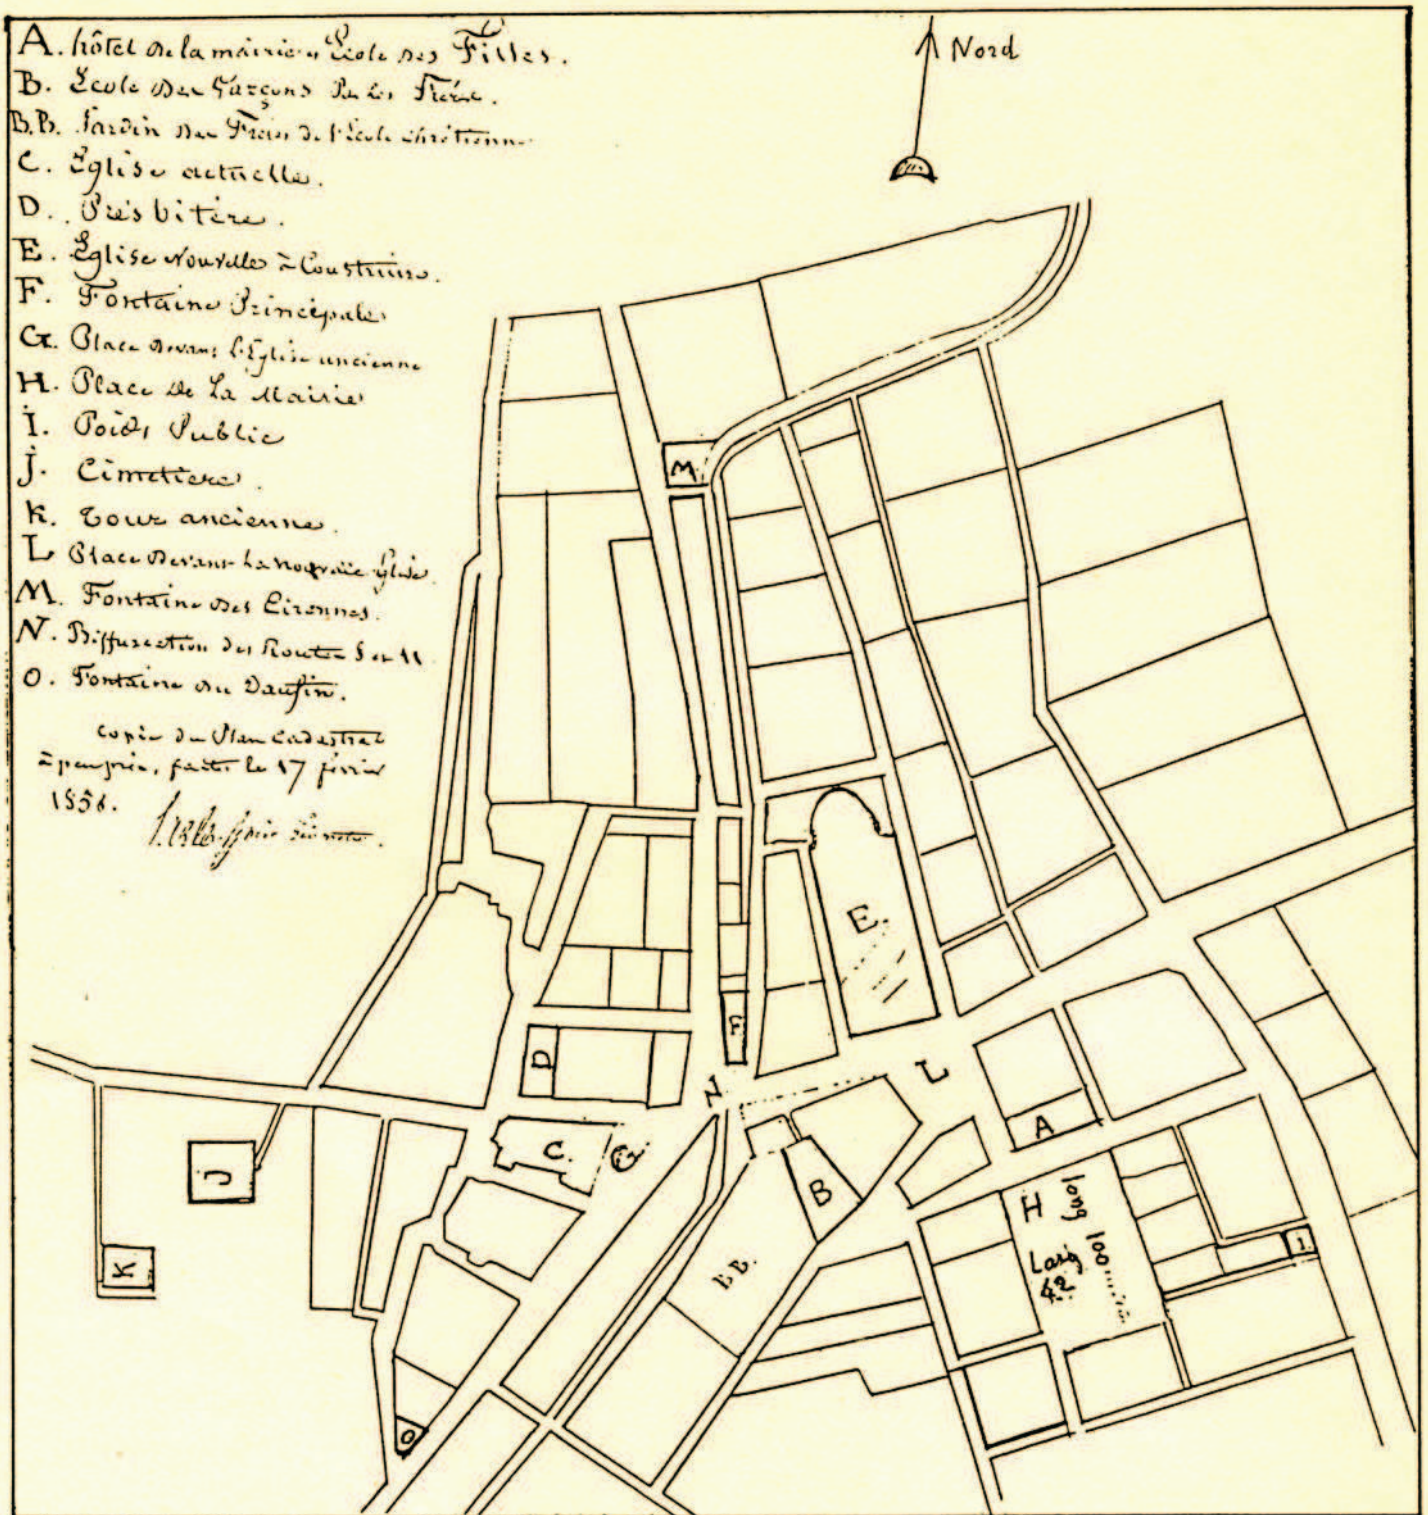 A. hôtel de la mairie, Ecole des Filles.
B. Ecole des Garçons Par les Frères.
B.B. Jardin des Frères de l'école chrétienne
C. Eglise actuelle.
D. Presbitère.
E. Eglise Nouvelle à Construire.
F. Fontaine Principale
G. Place devant l'Eglise ancienne
H. Place De La Mairie
I. Poids Public
J. Cimetiere.
K. Tour ancienne.
L Place devant La nouvelle église.
M. Fontaine des
N. Biffurcation des Routes 8 et 11
O. Fontaine du Daufin.
copie du Plan Cadastral
à peu près, faite le 17 février
1858.
Nord
M
E.
F
D
N
L
A
C.
G
B
J
H long 100
Larg
42
K
B B.
I
O